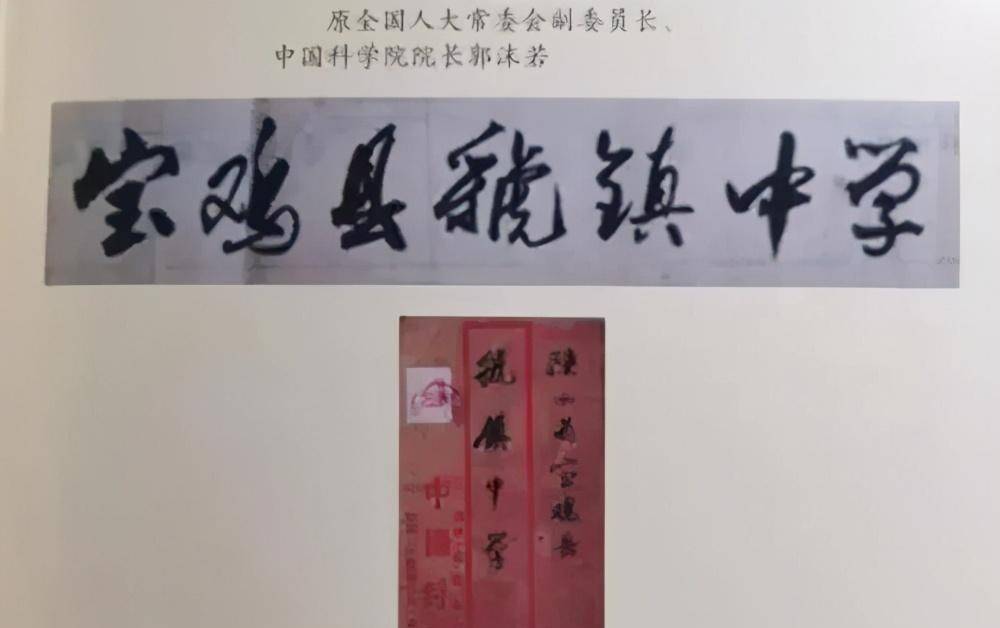 原全国人大常委会副委员长、
中国科学院院长郭沫若
宝鸡县虢镇中学
陕西省宝鸡县
虢镇中学
中国